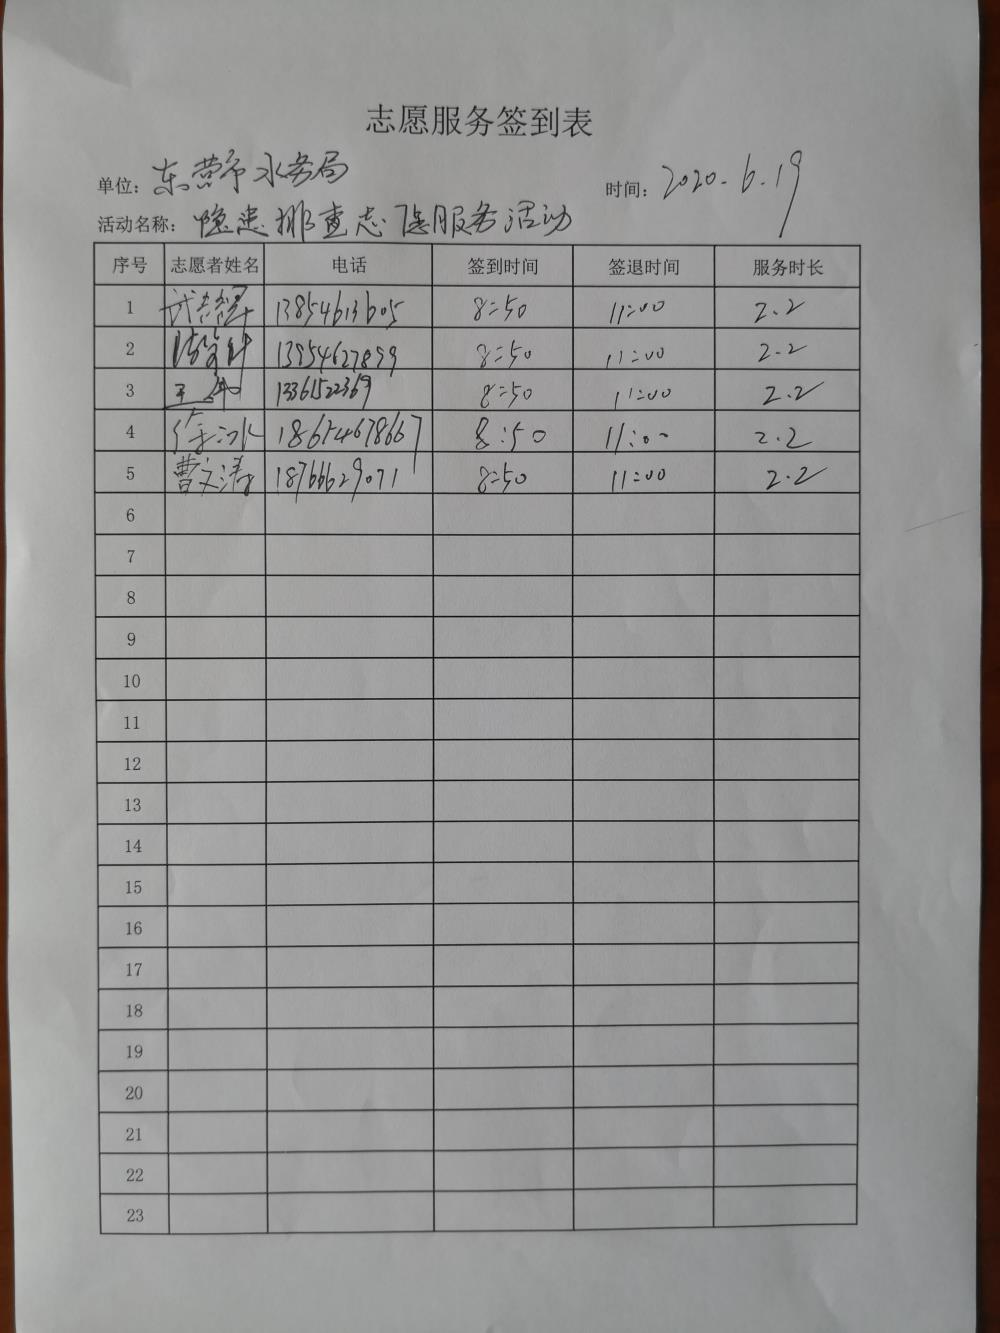 志愿服务签到表
单位：东营市水务局 时间：2020.6.19
活动名称：隐患排查志愿服务活动
序号 志愿者姓名 电话 签到时间 签退时间 服务时长
1 13854613605 8:50 11:00 2.2
2 13954627899 8:50 11:00 2.2
3 13361522369 8:50 11:00 2.2
4 徐冰 186154678667 8:50 11:00 2.2
5 曹文涛 18766629071 8:50 11:00 2.2
6
7
8
9
10
11
12
13
14
15
16
17
18
19
20
21
22
23